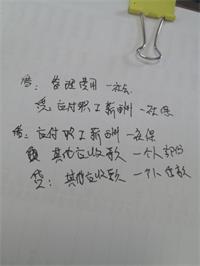 借：管理费用一社会
贷：应付职工薪酬一社保
借：应付职工薪酬一社保
其他应收款一个人部分
贷：其他应收款一个人